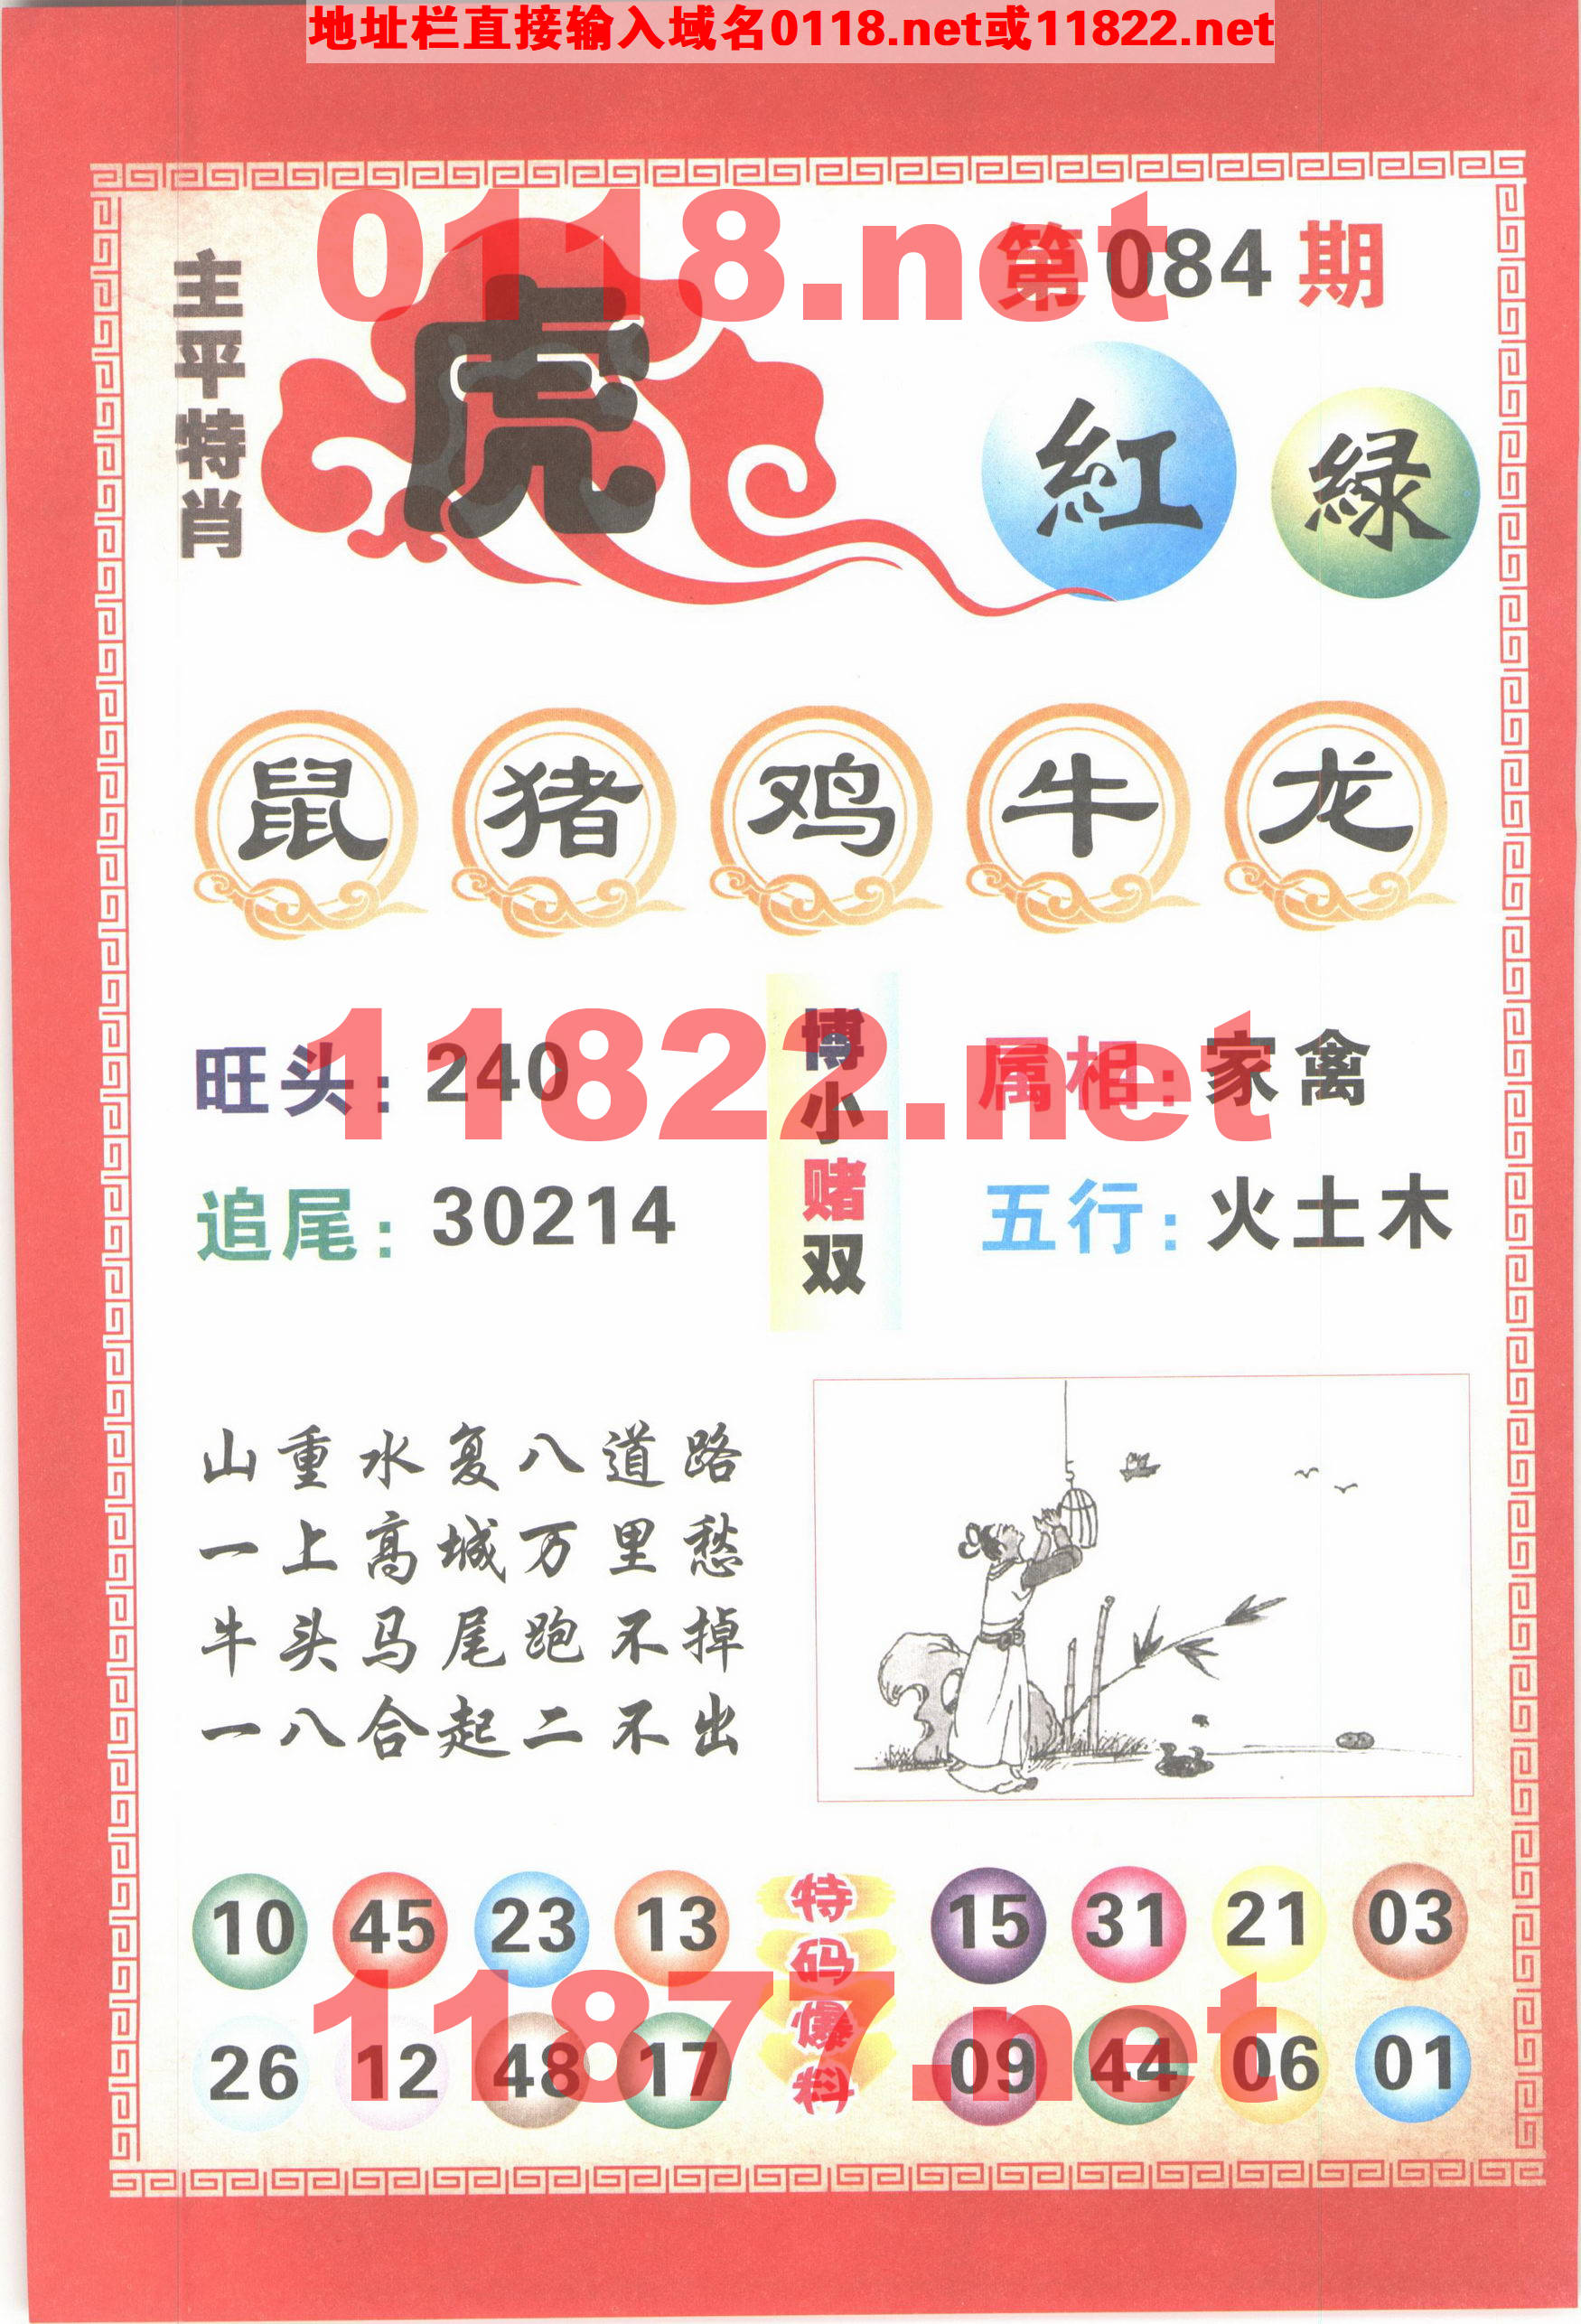 地址栏直接输入域名0118.net或11822.net
0118.net
第084期
主平特肖
虎
紅
緑
鼠 猪 鸡 牛 龙
11822.net
旺头：240
追尾：30214
博小赌双
属相：家禽
五行：火土木
山重水复八道路
一上高城万里愁
牛头马尾跑不掉
一八合起二不出
10 45 23 13
26 12 48 17
特码爆料
15 31 21 03
09 44 06 01
11877.net